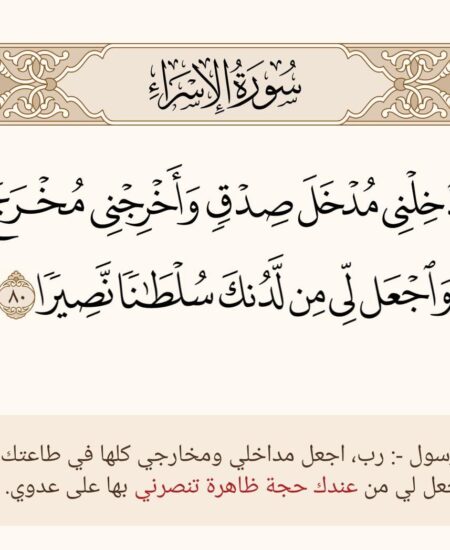 سُورَةُ الإِسْرَاءِ
دْخِلْنِي مُدْخَلَ صِدْقٍ وَأَخْرِجْنِي مُخْرَجَ
وَٱجْعَل لِّي مِن لَّدُنكَ سُلْطَٰنًا نَّصِيرًا ٨٠
رسول -: رب، اجعل مداخلي ومخارجي كلها في طاعتك
جعل لي من عندك حجة ظاهرة تنصرني بها على عدوي.